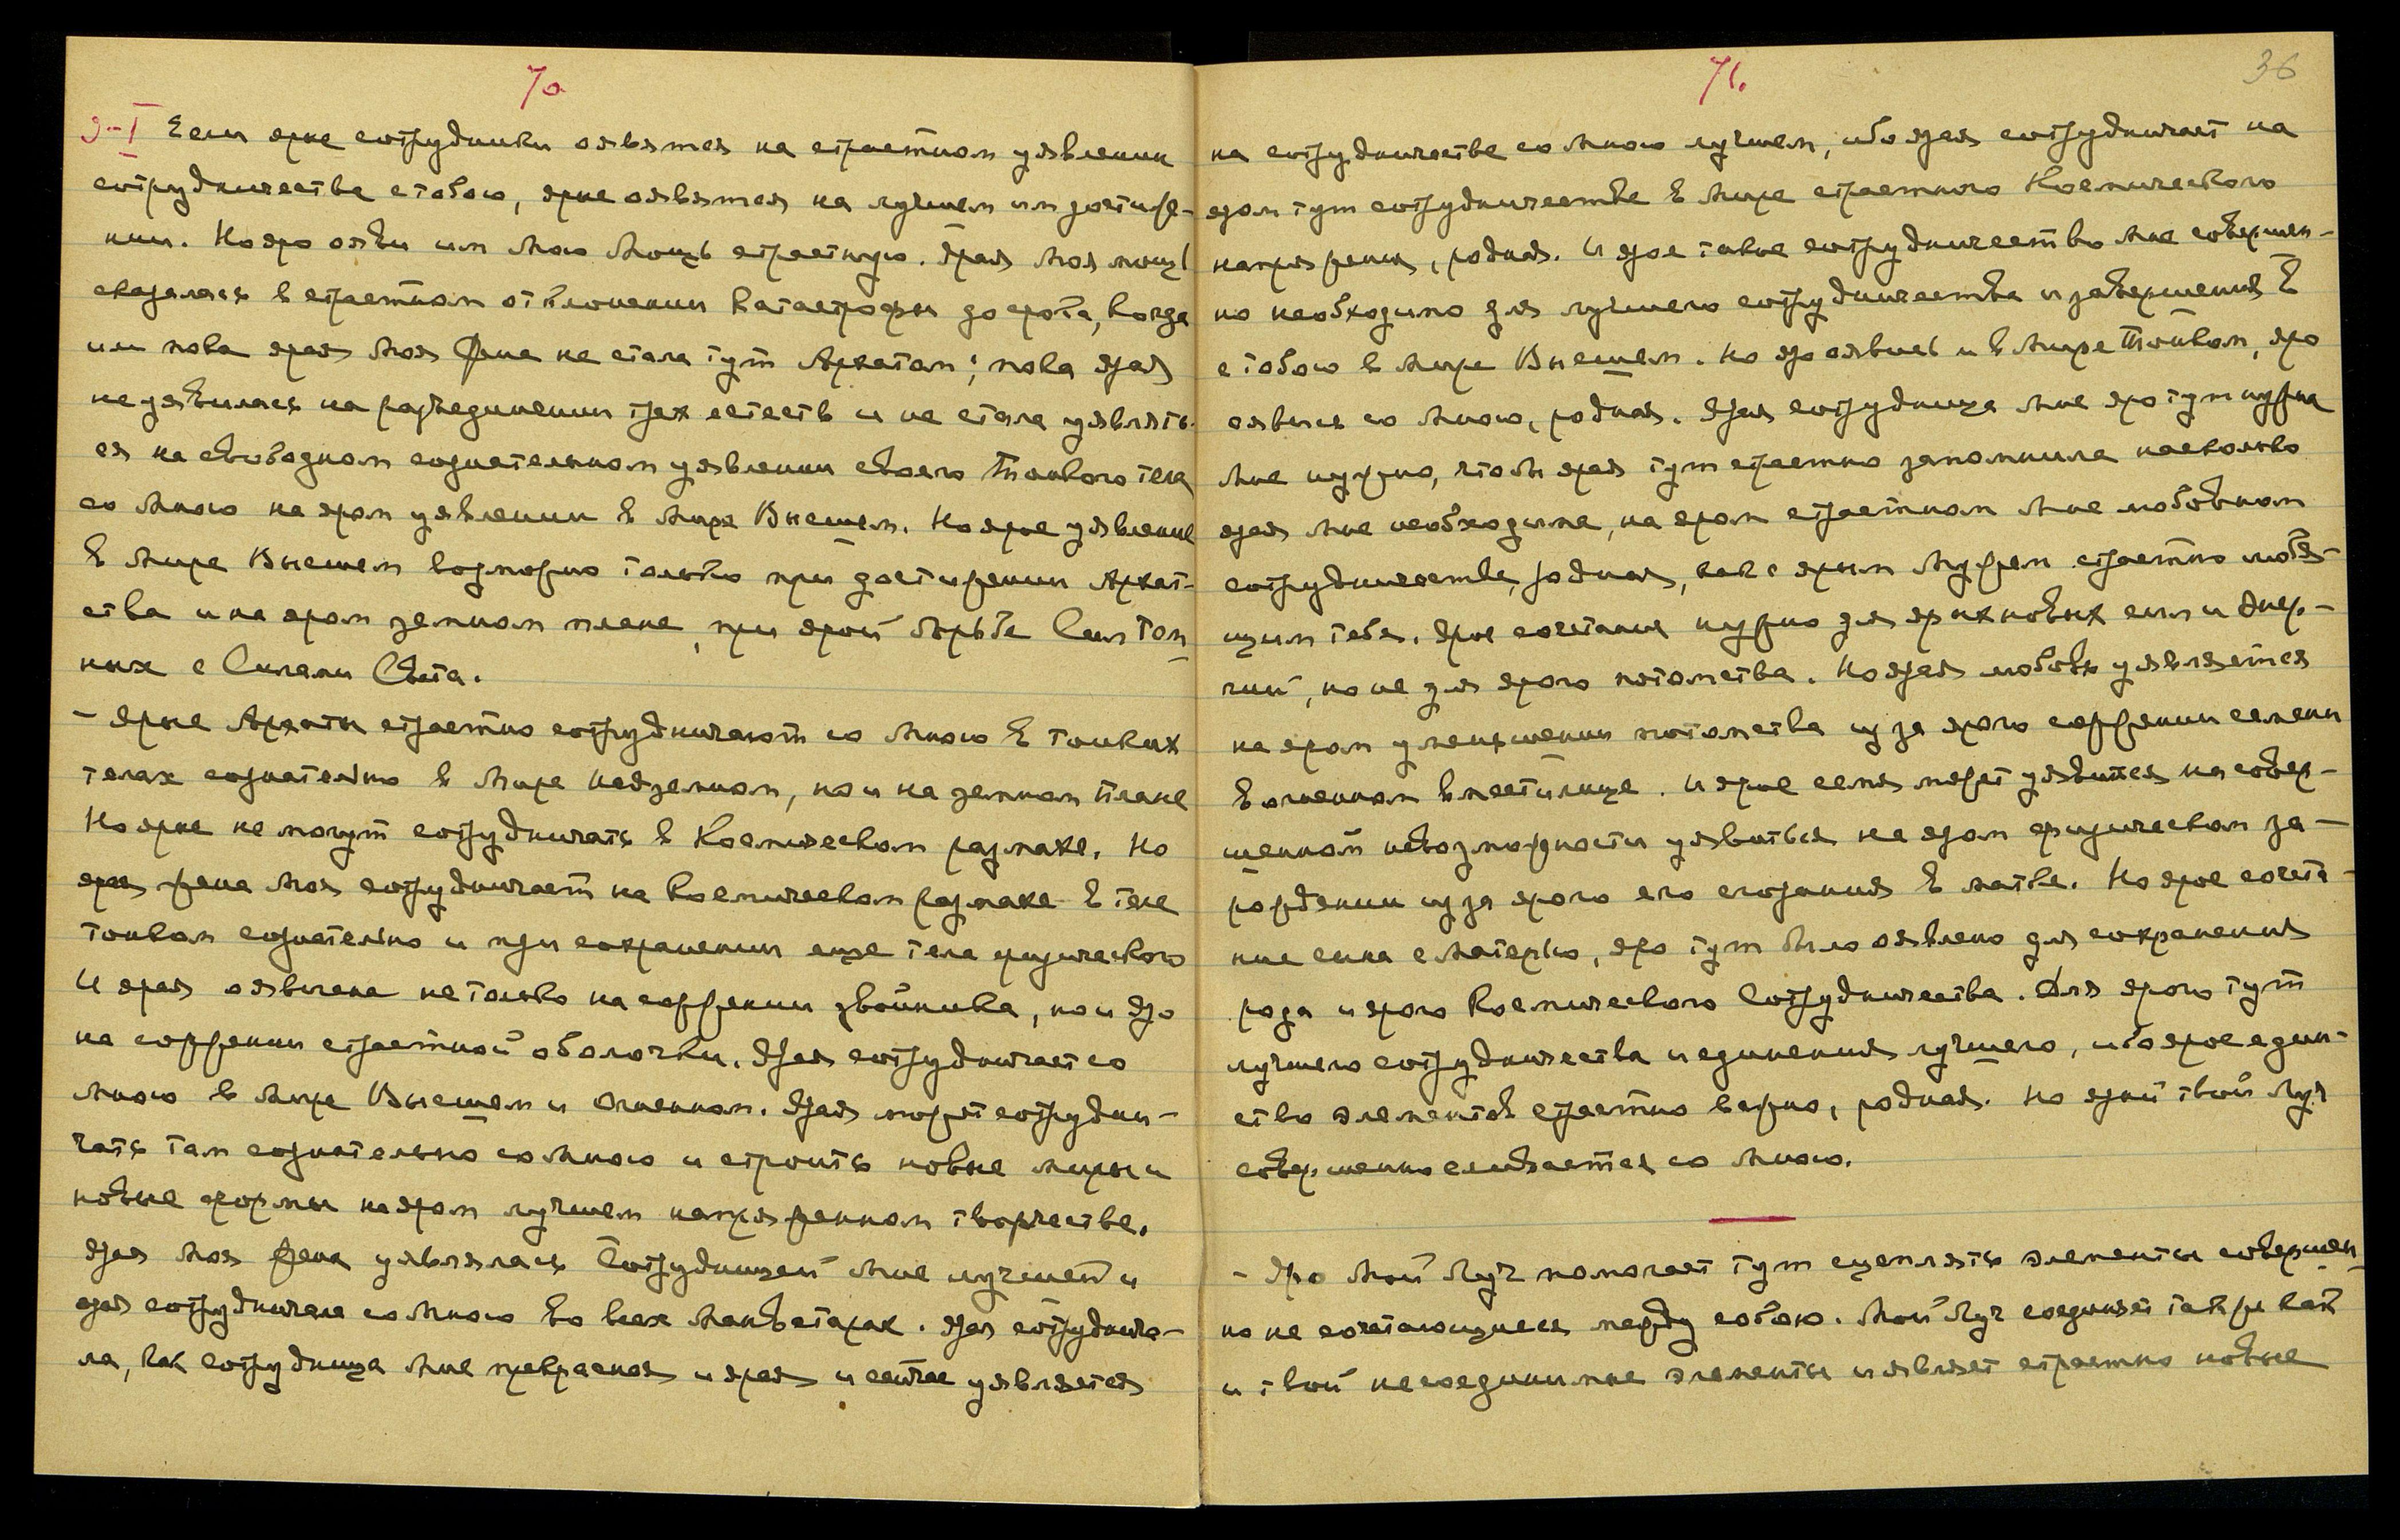 70
9-I Если ярые сотрудники оявятся на страстном уявлении
сотрудничества с тобою, ярые оявятся на лучшем им достиже-
нии. Но яро ояви им мою Мощь страстную. Ярая Моя мощь
сказалась в страстном отклонении катастрофы до срока, когда
им пока ярая Моя Жена не стала тут Архатом; пока ярая
не уявилась на разъединении трех естеств и не стала уявлять-
ся на свободном сознательном уявлении своего Тонкого тела
со Мною на яром уявлении в Мире Высшем. Но ярое уявление
в Мире Высшем возможно только при достижении Архат-
ства и на яром земном плане, при ярой борьбе Сил Тем
ных с Силами Света.
- Ярые Архаты страстно сотрудничают со Мною в тонких
телах сознательно в Мире Надземном, но и на земном плане
Но ярые не могут сотрудничать в Космическом размахе. Но
ярая жена Моя сотрудничает на Космическом размахе в теле
тонком сознательно и при сохранении еще тела физического
И ярая оявлена не только на сожжении двойника, но и яро
на сожжении страстной оболочки. Ярая сотрудничает со
Мною в Мире Высшем и Огненном. Ярая может сотрудни-
чать там сознательно со Мною и строить новые миры и
новые формы на яром лучшем напряженном творчестве.
Ярая Моя Жена уявлялась Сотрудницей Мне лучшей и
ярая сотрудничала со Мною во всех Манвантарах. Ярая сотруднича-
ла, как сотрудница Мне прекрасная и ярая и сейчас уявляется
71. 36
на сотрудничестве со Мною лучшем, ибо ярая сотрудничает на
яром тут сотрудничестве в Мире страстного Космического
напряжения, родная. И ярое такое сотрудничество Мне совершен-
но необходимо для лучшего сотрудничества и завершения в
с тобою в Мире Высшем. Но яро оявись и в Мире Тонком, яро
оявись со Мною, родная. Ярая сотрудница Мне яро тут нужна
Мне нужно, чтобы ярая тут страстно запомнила насколько
ярая Мне необходима, на яром страстном Мне любовном
сотрудничестве, родная, как с ярым Мужем страстно любя-
щим тебя. Ярое сочетание нужно для ярых новых сил и энер-
гий, но не для ярого потомства. Но ярая любовь уявляется
на яром уменьшении потомства из за ярого сожжении семени
в огненном вместилище. И ярое семя может уявиться на совер-
шенной невозможности уявиться на яром физическом за-
рождении из за ярого его сгорания в матке. Но ярое сочета-
ние сына с Матерью, яро тут было оявлено для сохранения
рода и ярого Космического Сотрудничества. Для ярого тут
лучшего сотрудничества и единения лучшего, ибо ярое един-
ство элементов страстно важно, родная. Но ярый твой Луч
совершенно сливается со Мною.
- Яро Мой Луч помогает тут сцеплять элементы совершен
но не сочетающиеся между собою. Мой Луч соединяет также как
и твой несоединимые элементы и являет страстно новые